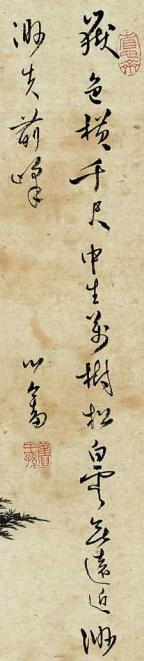 嶽色橫千尺中生萬樹松白雲無遠近渺
渺失前峰
心畬
舊王孫